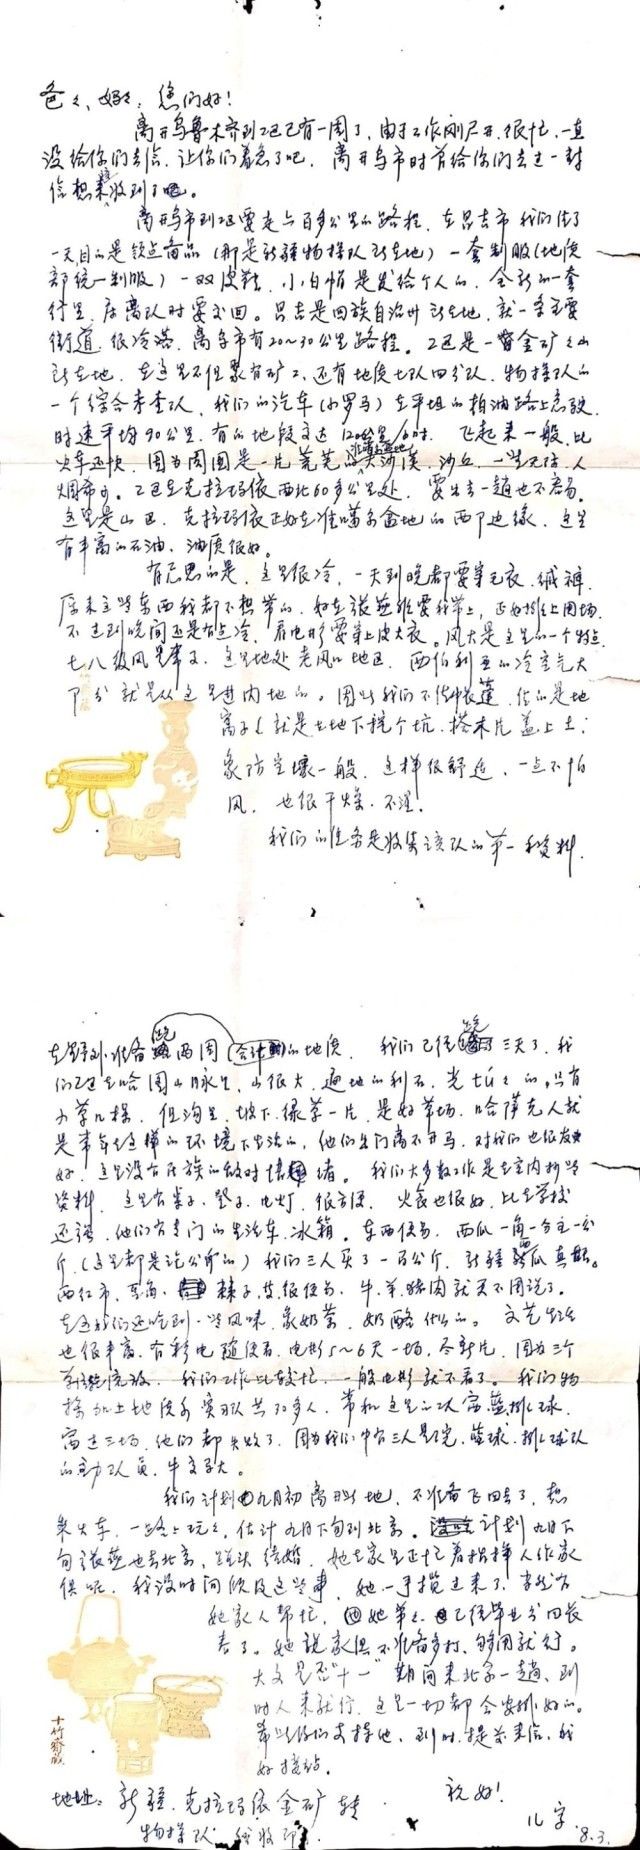 爸々、妈々：您们好！
离开乌鲁木齐到工区已有一周了，由于工作刚展开，很忙，一直
没给你们去信，让你们着急了吧。离开乌市时曾给你们去过一封
信想来收到了吧。
离开乌市到工区要走六百多公里的路程，在昌吉市我们住了
一天目的是领点备品（那是新疆物探队所在地）一套制服（地质
部统一制服）一双皮鞋，小白帽是发给个人的，全新的一套
行里，原离队时要交回。昌吉是回族自治州所在地，就一条主要
街道，很冷落，离乌市有20～30公里路程。工区是一金矿
所在地，在这里不但有矿工，还有地质七队四分队，物探队的
一个综合普查队，我们的汽车（小罗马）在平坦的柏油路上急驶，
时速平均90公里，有的地段可达120公里/小时，飞起来一般，比
火车还快，因为周围是一片荒荒的大沙漠，沙丘，一望无际，人
烟稀少。工区在克拉玛依西北60多公里处，要出去一趟也不容易。
这里是山区，克拉玛依正好在准噶尔盆地的西部边缘，这里
有丰富的石油，油质很好。
有意思的是，这里很冷，一天到晚都要穿毛衣、绒裤，
原来这些东西我都不想带的，好在张燕非要我带上，正好派上用场，
不过到晚间还是有点冷，看电影要穿上皮大衣。风大是这里的一个特点，
七八级风是常事，这里地处老风口地区，西伯利亚的冷空气大
部分就是从这里进内地的。因此我们不住帐蓬，住的是地
窝子（就是在地下挖个坑，搭木片盖上土；
象防空壕一般，这样很舒适，一点不怕
风，也很干燥，不湿。
我们的任务是收集该队的第一手资料，
在野外准备跑两周（合计）的地质，我们已经跑了三天了，我
们工区在哈图山脉里，山很大，遍地的利石，光秃々的。只有
小草几棵，但沟里、坡下，绿草一片，是好草场，哈萨克人就
是常年在这样的环境下生活的，他们出门离不开马，对我们也很友
好，这里没有民族的敌对情绪。我们大多数工作是在室内抄写
资料，这里有桌子、凳子、电灯，很方便，火食也很好，比在学校
还强，他们有专门的生活车、冰箱。东西便易，西瓜一角一分一公
斤（这里都是论公斤的）我们三人买了一百公斤，新疆西瓜真甜。
西红市、豆角、辣子、茄很便易，牛、羊、猪肉就更不用说了。
在这我们还吃到一些风味，象奶茶、奶酪什么的。文艺生活
也很丰富，有彩电随便看，电影5～6天一场，尽新片，因为三个
单位流放，我们工作比较忙，一般电影就不看了。我们物
探加上地质系实习队共30多人，常和这里的队赛蓝、排球，
赛过三场，他们都失败了，因为我们中有三人是院蓝球、排球队
的主力队员，牛皮了大。
我们计划九月初离开此地，不准备飞回去了，想
乘火车，一路上玩々，估计九月下旬到北京。计划九月下
旬张燕也去北京，碰头结婚，她在家里正忙着指挥人作家
俱呢，我没时间顾及这些事，她一手揽过来了，当然有
她家人帮忙，她弟々已经毕业分回长
春了。她说家俱不准备多打，够用就行。
大文是否“十一”期间来北京一趟，到
时人来就行，这里一切都会安排好的。
希望你们支持他，到时提前来信，我
好接站。
祝好！
地址：新疆，克拉玛依金矿转
物探队 我收即。
儿字
8.3.
十竹斋藏